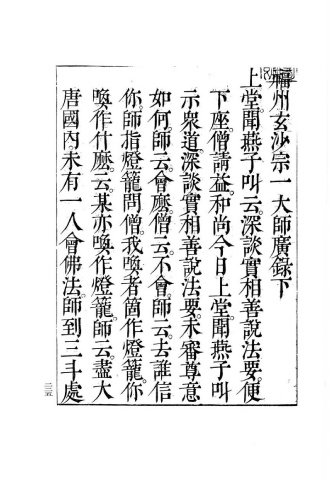 福州玄沙宗一大師廣錄下
上堂。聞燕子叫云。深談實相善說法要。便
下座。僧請益。和尚今日上堂。聞燕子叫
示衆道。深談實相善說法要。未審尊意
如何。師云。會麼。僧云。不會。師云。去。誰信
你。師指燈籠問僧。我喚者箇作燈籠。你
喚作什麼。云。某亦喚作燈籠。師云。盡大
唐國內未有一人會佛法。師到三斗處
二三五